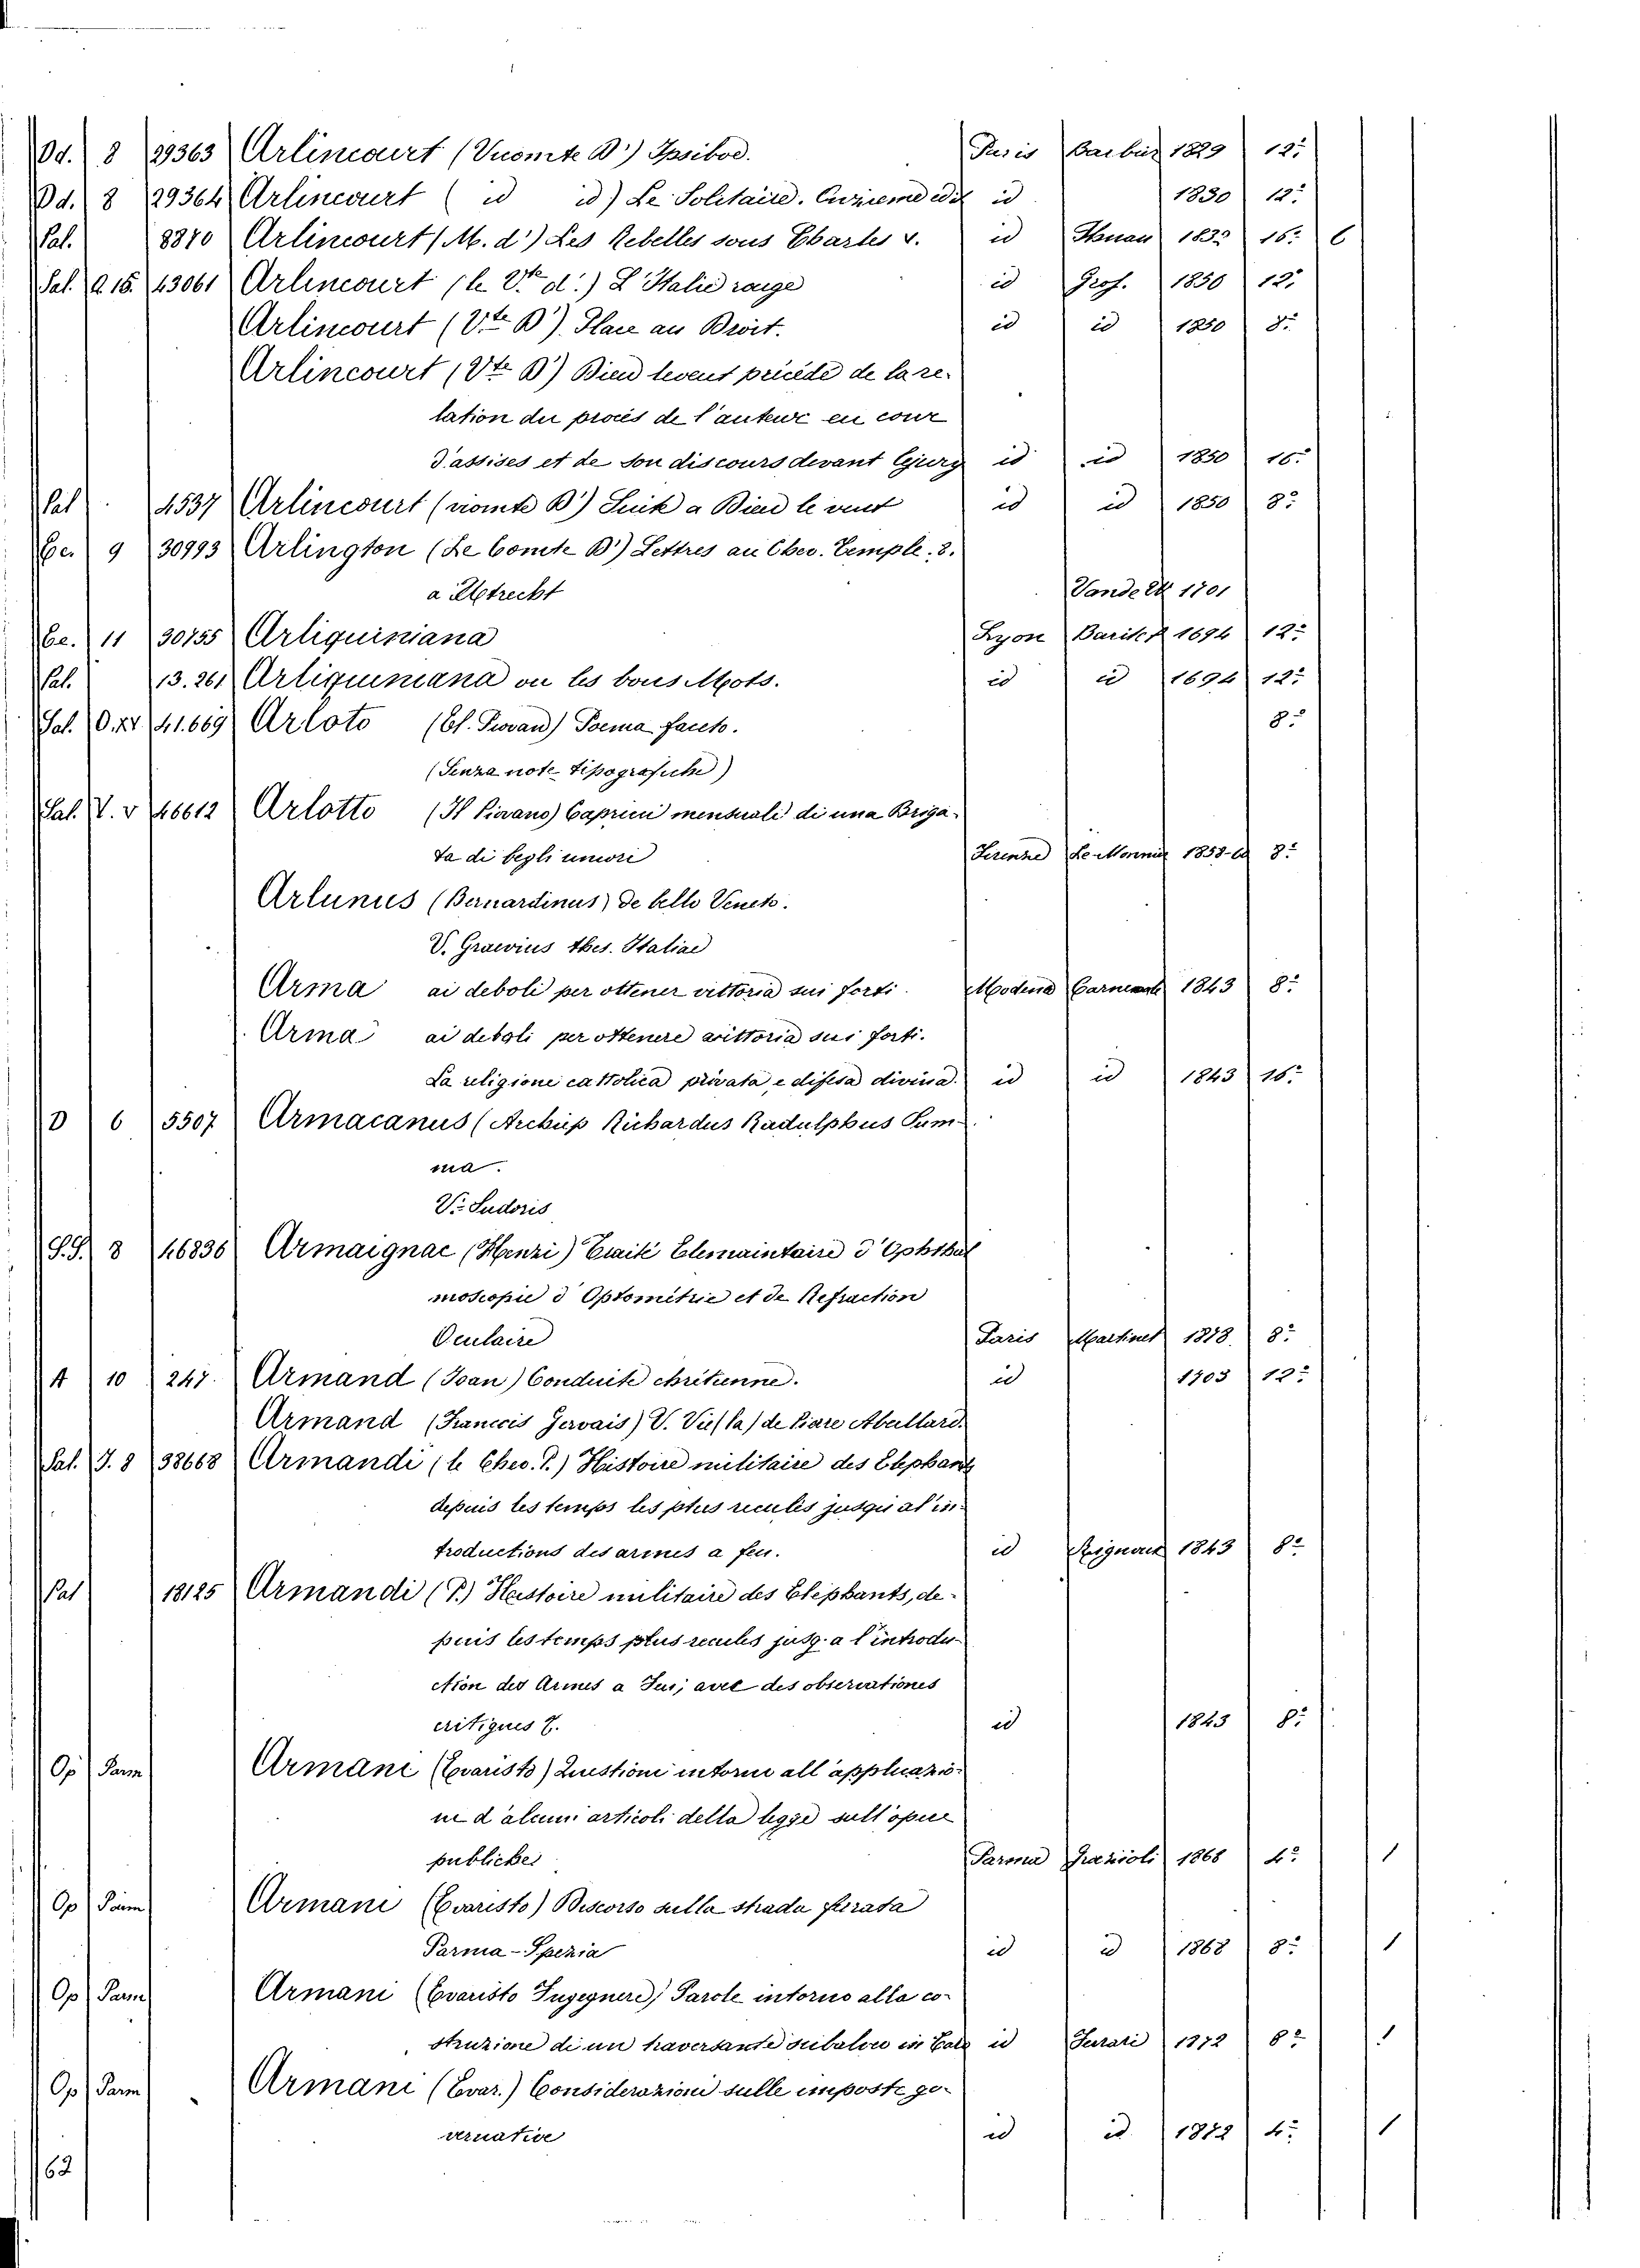 Dd. 8 29363 Arlincourt (Vicomte D') Ipsiboé. Paris Barbuz 1829 12.º
Dd. 8 29364 Arlincourt ( id id) Le Solitaire. Onzieme edit id 1830 12.º
Pal. 8870 Arlincourt (M. d') Les Rebelles sous Charles V. id 1832 16.º 6
Pal. 43061 Arlincourt (le V.te d.') L'Italie rouge id 1850 12.º
Arlincourt (V.te D'). Place au Droit. id id 1850 8.º
Arlincourt (V.te D') Dieu le veut précéde de la re-
lation du procés de l'auteur en cour
d'assises et de son discours devant le jury id id 1850 16.º
Pal 4537 Arlincourt (vicomte D') Suite a Dieu le veut id id 1850 8.º
Ee. 9 30993 Arlington (Le Comte D') Lettres au Chev. Temple. 2.
a Utrecht 1701
Ee. 11 30755 Arliquiniana Lyon 1694 12.º
Pal. 13.261 Arliquiniana ou les bons Mots. id id 1694 12.º
Pal. O. XV 41.669 Arloto (Il Piovan) Poema faceto. 8.º
(Senza note tipografiche)
Pal. V. V 46612 Arlotto (Il Piovano) Capricci mensuali di una Briga-
ta di begli umori Firenze Le Monnier 8.º
Arlunus (Bernardinus) de bello Veneto.
V. Graevius thes. Italiae
Arma ai deboli per ottener vittoria sui forti. Modena 1843 8.º
Arma ai deboli per ottenere vittoria sui forti.
La religione cattolica provata, e difesa divina. id id 1843 16.º
D 6 5507 Armacanus (Archiep Richardus Radulphus Sum-
ma.
V. Sudoris
S.S. 8 46836 Armaignac (Henri) Traité Elemaintaire d'Ophthal
moscopie d'Optométrie et de Refraction
Oculaire Paris Martinet 1878. 8.º
A 10 247. Armand (Ioan) Conduite chrétienne. id 1703 12.º
Armand (Francois Gervais) V. Vie (la) de Piare Abaillard.
Pal. J. 8 38668 Armandi (le Chev. P.) Histoire militaire des Elephants
depuis les temps les plus reculés jusqu'a l'in-
troductions des armes a feu. id 1843 8.º
Pal 18125 Armandi (P.) Histoire militaire des Elephants, de-
puis les temps plus reculés jusq. a l'introdu-
ction des Armes a Feu, avec des observations
critiques id 1843 8.º
Op Parm Armani (Evaristo) Questioni intorno all'applicazio-
ne d'alcuni articoli della legge sull'opere
pubbliche Parma Grazioli 1868 4.º 1
Op Parm Armani (Evaristo) Discorso sulla strada ferata
Parma-Spezia id id 1868 8.º 1
Op Parm Armani (Evaristo Ingegnere) Parole intorno alla co-
struzione di un id Ferrari 1872 8.º 1
Op Parm Armani (Evar.) Considerazioni sulle imposte go-
vernative id id. 1872 4.º 1
62